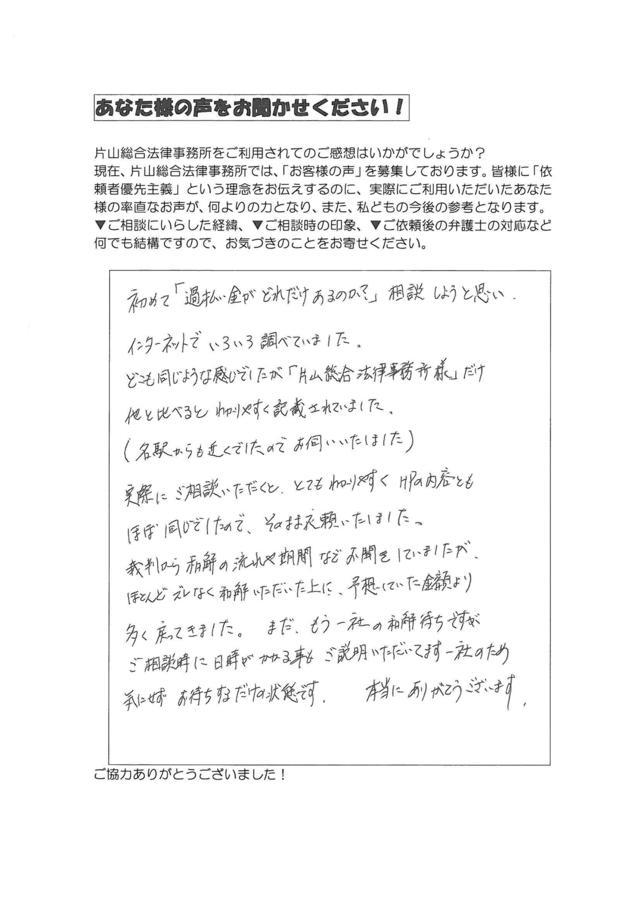 あなた様の声をお聞かせください！
片山総合法律事務所をご利用されてのご感想はいかがでしょうか？
現在、片山総合法律事務所では、「お客様の声」を募集しております。皆様に「依
頼者優先主義」という理念をお伝えするのに、実際にご利用いただいたあなた
様の率直なお声が、何よりの力となり、また、私どもの今後の参考となります。
▼ご相談にいらした経緯、▼ご相談時の印象、▼ご依頼後の弁護士の対応など
何でも結構ですので、お気づきのことをお寄せください。
初めて「過払い金がどれだけあるのか？」相談しようと思い、
インターネットでいろいろ調べていました。
どこも同じような感じでしたが「片山総合法律事務所様」だけ
他と比べるとわかりやすく記載されていました。
（名駅からも近くでしたのでお伺いいたしました）
実際にご相談いただくと、とてもわかりやすくHPの内容とも
ほぼ同じでしたので、そのまま依頼いたしました。
裁判から和解の流れや期間などお聞きしていましたが、
ほとんどズレなく和解いただいた上に、予想していた金額より
多く戻ってきました。まだ、もう一社の和解待ちですが
ご相談時に日時がかかる事もご説明いただいてます一社のため
気にせずお待ちするだけの状態です。本当にありがとうございます。
ご協力ありがとうございました！